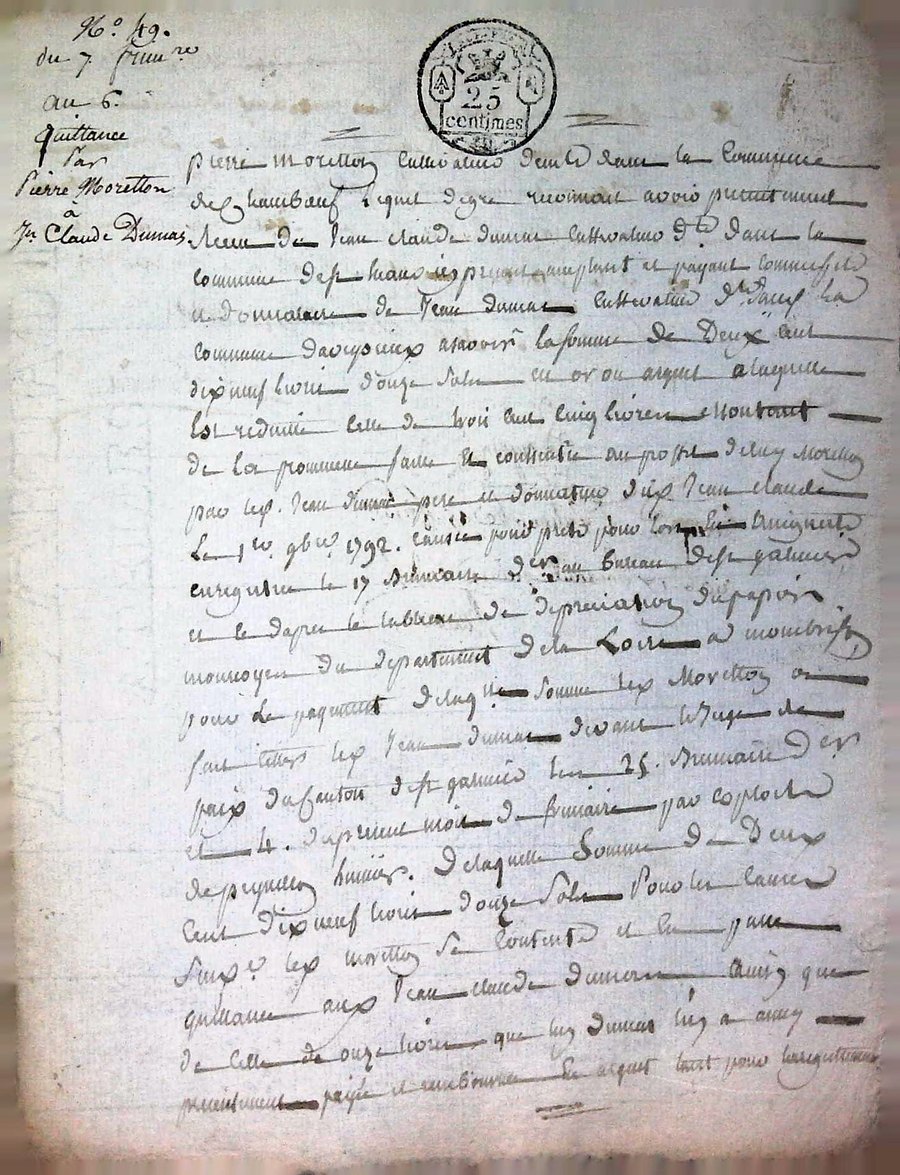 N.o 49.
du 7 frim.re
an 6.
Quittance
Par
Pierre Moretton
a
Jn Claude Dumas
25
centimes
pierre moretton Cultivateur dem.t dans la Commune
de Chambœuf lequel de gré reconnait avoir presentement
Recu de Jean claude dumas Cultivateur d.t dans la
commune de st payant comme
et donnataire de Jean dumas Cultivateur d.t dans la
commune a scavoir la somme de Deux Cent
dix neuf livres douze sols en or ou argent a laquelle
Est reduitte Celle de trois Cent Cinq livres
de la promesse faite et consentie au profit deluy Moretton
par lex. Jean dumas pere et donnateur dux Jean claude
Le 1.er 9bre 1792. causée pour pret
enregistrée le 17 Brumaire d.er au bureau de st galmier
et ce dapres le tableau de depreciation du papier
monnoyer du departement de la Loire a montbrison
pour Le payement delaq.lle somme lex Moretton a
fait citter lex Jean dumas devant le Juge de
paix du Canton de st galmier les 25. Brumaire d.er
et 4. du present mois de frimaire par exploits
de huissier. de laquelle Somme de Deux
Cent Dix neuf livres douze sols Pour les causes
lex moretton se Contente et en passe
quittance aux Jean claude dumas Ainsy que
de Celle de onze livres que luy dumas luy a aussy
presentement payé et remboursée En argent tant pour lenregistrement